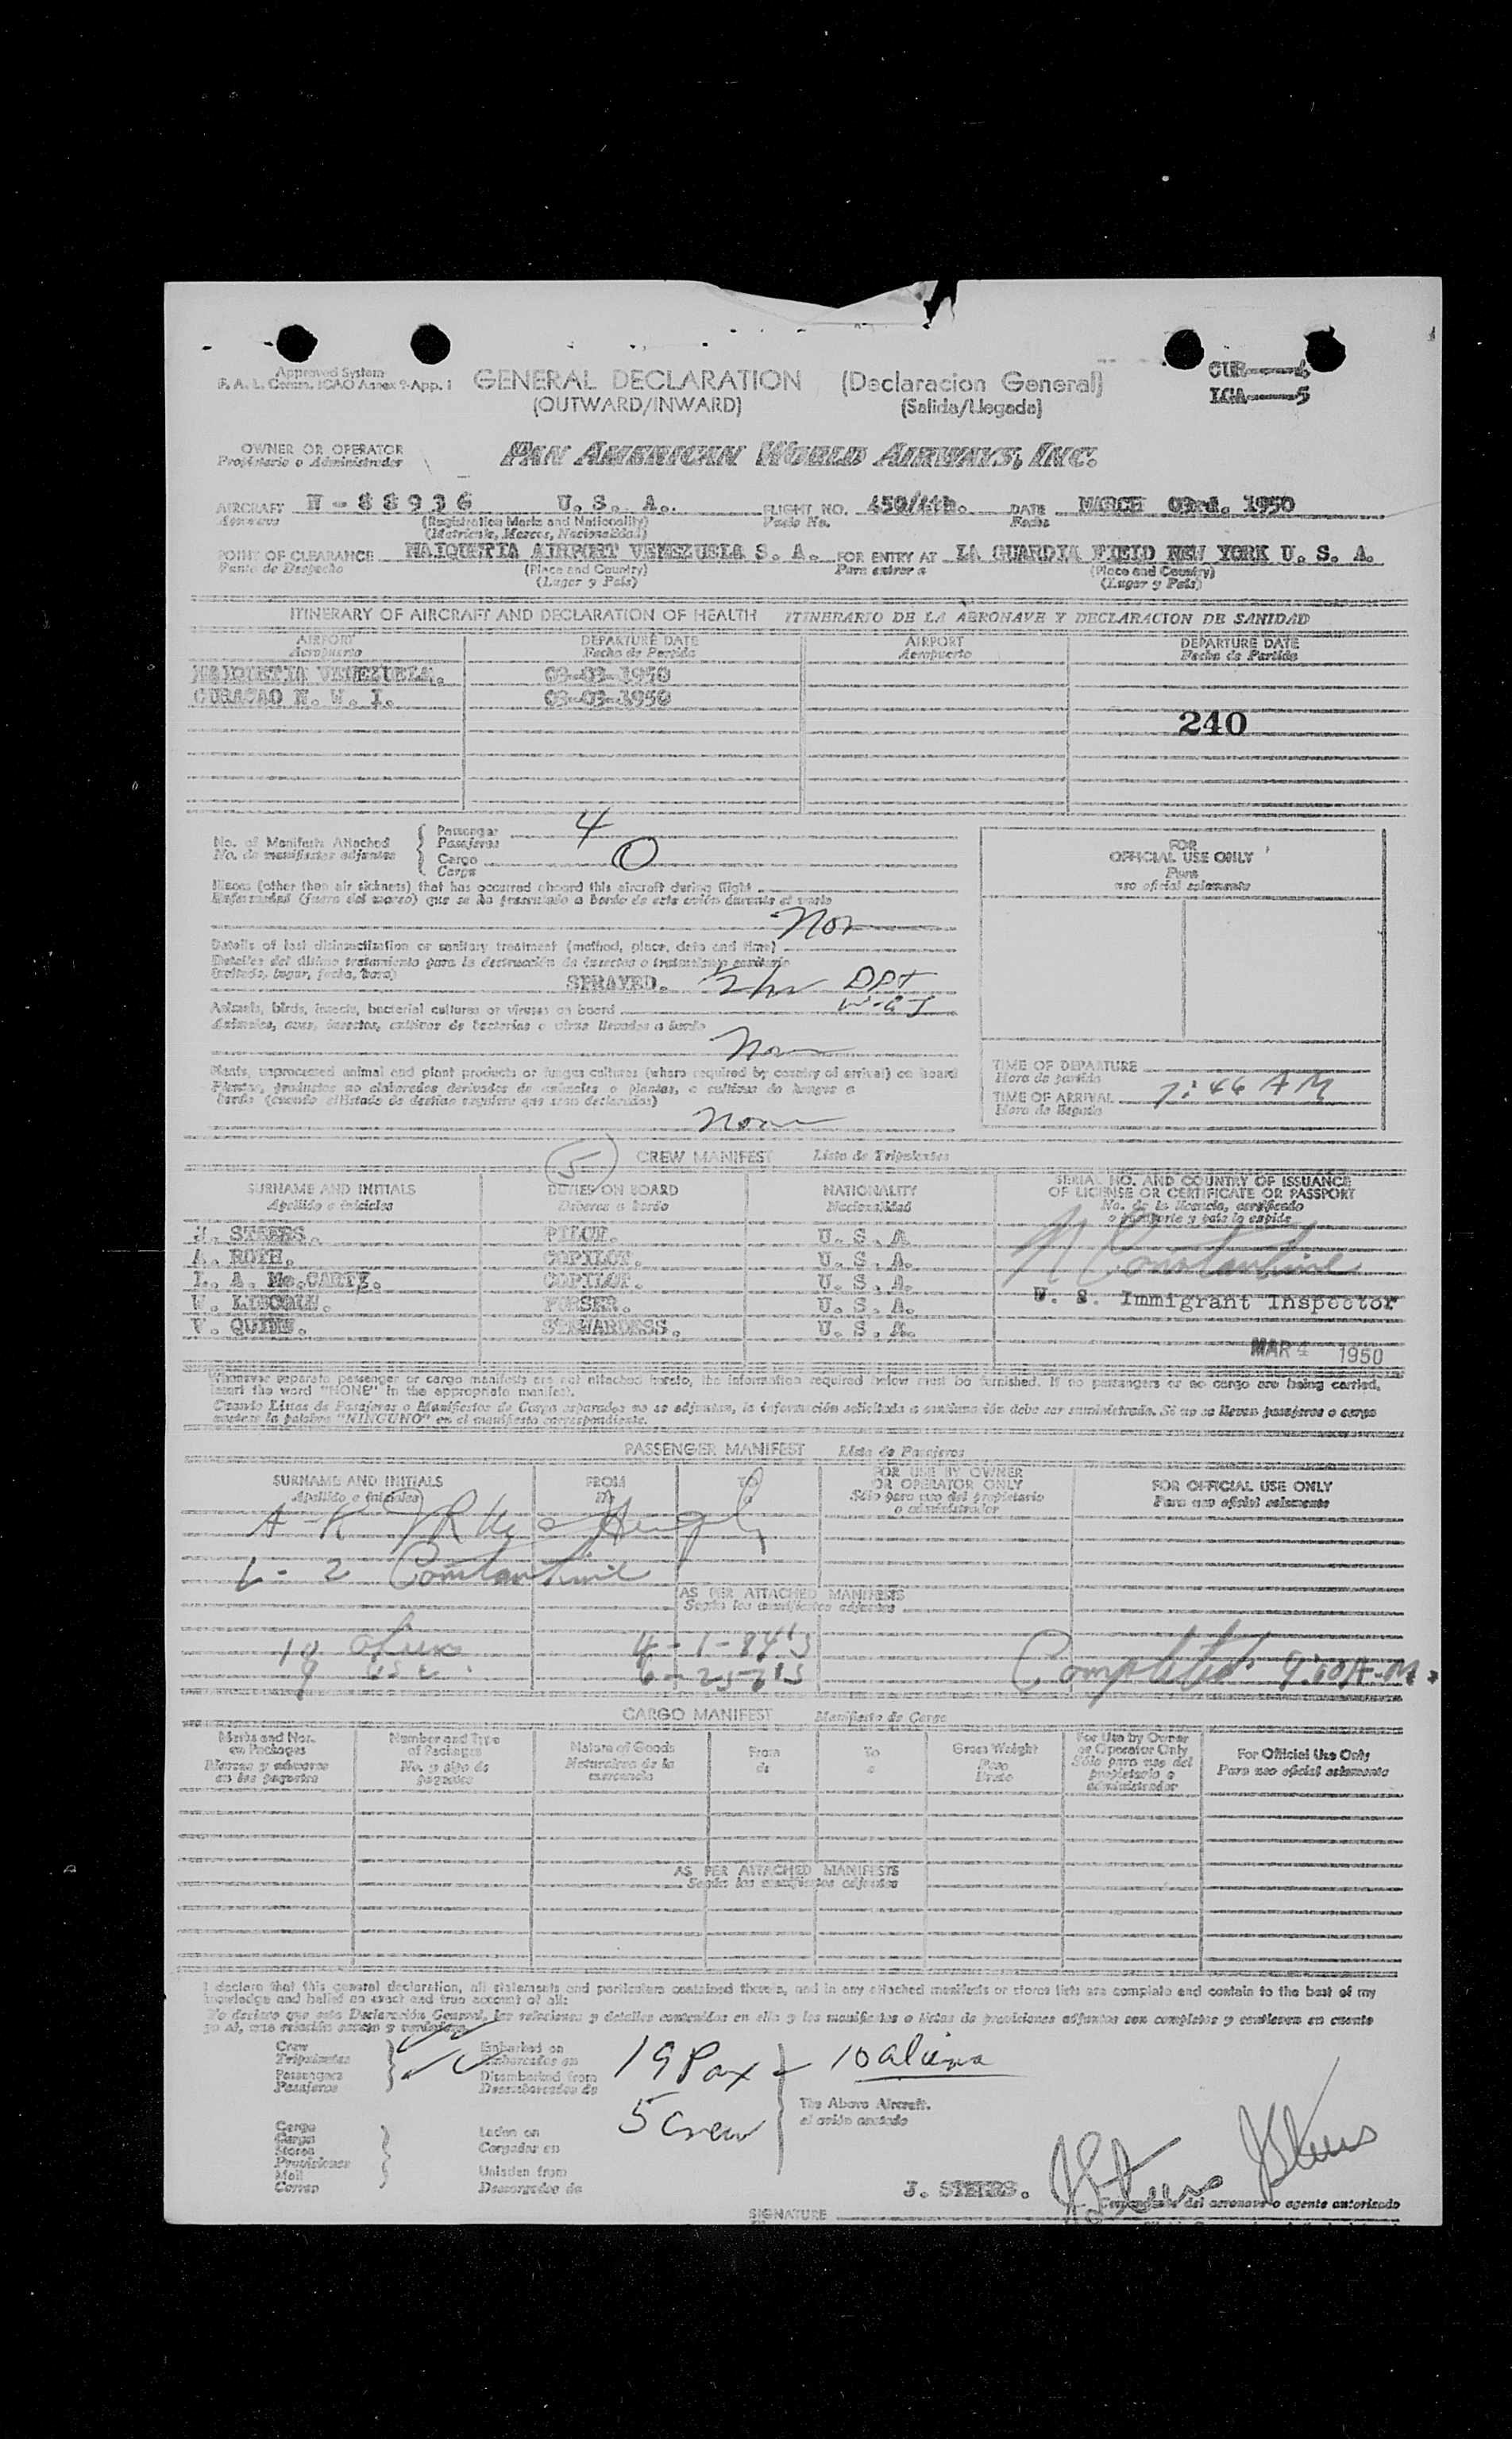 Approved System
F. A. L. Comm. ICAO Annex 9-App. 1
GENERAL DECLARATION (Declaracion General)
(OUTWARD/INWARD) (Salida/Llegada)
CUR
LGA-----5
OWNER OR OPERATOR
Propietario o Administrador
PAN AMERICAN WORLD AIRWAYS, INC.
AIRCRAFT N - 8 8 9 3 6 U. S. A. FLIGHT NO. 450/4th. DATE MARCH 03rd. 1950
Aeronave (Registration Marks and Nationality) Vuelo No. Fecha
(Matricula, Marcas, Nacionalidad)
POINT OF CLEARANCE MAIQUETIA AIRPORT VENEZUELA S. A. FOR ENTRY AT LA GUARDIA FIELD NEW YORK U. S. A.
Punto de Despacho (Place and Country) Para entrar a (Place and Country)
(Lugar y País) (Lugar y País)
ITINERARY OF AIRCRAFT AND DECLARATION OF HEALTH ITINERARIO DE LA AERONAVE Y DECLARACION DE SANIDAD
AIRPORT DEPARTURE DATE AIRPORT DEPARTURE DATE
Aeropuerto Fecha de Partida Aeropuerto Fecha de Partida
MAIQUETIA VENEZUELA. 03-03-1950
CURACAO N. W. I. 03-03-1950
240
No. of Manifests Attached Passenger 4
No. de manifiestos adjuntos Pasajeros
Cargo 0
Carga
FOR
OFFICIAL USE ONLY
Para
uso oficial solamente
Illness (other than air sickness) that has occurred aboard this aircraft during flight
Enfermedad (fuera del mareo) que se ha presentado a bordo de este avión durante el vuelo
Details of last disinsectization or sanitary treatment (method, place, date and time)
Detalles del último tratamiento para la destrucción de insectos o tratamiento sanitario
(método, lugar, fecha, hora)
SPRAYED.
Animals, birds, insects, bacterial cultures or viruses on board
Animales, aves, insectos, cultivos de bacterias o virus llevados a bordo
Plants, unprocessed animal and plant products or fungus cultures (where required by country of arrival) on board
Plantas, productos no elaborados derivados de animales o plantas, o cultivos de hongos a
bordo
TIME OF DEPARTURE
Hora de partida
TIME OF ARRIVAL 7:46 AM
Hora de llegada
5 CREW MANIFEST Lista de Tripulantes
SURNAME AND INITIALS DUTIES ON BOARD NATIONALITY SERIAL NO. AND COUNTRY OF ISSUANCE
OF LICENSE OR CERTIFICATE OR PASSPORT
Apellido e iniciales Deberes a bordo Nacionalidad No. de la licencia, certificado
o pasaporte y país lo expide
J. STEERS. PILOT. U. S. A.
A. ROTH. COPILOT. U. S. A.
L. A. Mc.CARTY. COPILOT. U. S. A.
PURSER. U. S. A.
V. QUINN. STEWARDESS. U. S. A.
N Constantine
U. S. Immigrant Inspector
MAR 4 1950
Whenever separate passenger or cargo manifests are not attached hereto, the information required below must be furnished. If no passengers or no cargo are being carried,
insert the word "NONE" in the appropriate manifest.
Cuando Listas de Pasajeros o Manifiestos de Carga separados no se adjuntan, la información solicitada a continuación debe ser suministrada. Si no se llevan pasajeros o carga
anótese la palabra "NINGUNO" en el manifiesto correspondiente.
PASSENGER MANIFEST Lista de Pasajeros
SURNAME AND INITIALS FROM TO FOR USE BY OWNER
OR OPERATOR ONLY FOR OFFICIAL USE ONLY
Apellido e iniciales De A Sólo para uso del propietario
o administrador Para uso oficial solamente
A - K
L - Z Constantine
AS PER ATTACHED MANIFESTS
Según los manifiestos adjuntos
10 aliens
9 USC.
Completed 9:10 A.M.
CARGO MANIFEST Manifiesto de Carga
Marks and Nos.
on Packages Number and Type
of Packages Nature of Goods From To Gross Weight For Use by Owner
or Operator Only For Official Use Only
No. y tipo de
paquetes Naturaleza de la
mercancía de a Peso
Bruto Sólo para uso del
propietario o
administrador Para uso oficial solamente
AS PER ATTACHED MANIFESTS
Según los manifiestos adjuntos
I declare that this general declaration, all statements and particulars contained therein, and in any attached manifests or stores lists are complete and contain to the best of my
knowledge and belief an exact and true account of all:
Yo declaro que esta Declaración General, las relaciones y detalles contenidos en ella y los manifiestos o listas de provisiones adjuntos son completos y contienen en cuanto
Crew
Tripulantes
Passengers
Pasajeros
Embarked on
Embarcados en
Disembarked from
Desembarcados de
19 Pax - 10 aliens
5 Crew
The Above Aircraft.
el avión anotado
Cargo
Carga
Stores
Provisiones
Mail
Correo
Laden on
Cargados en
Unladen from
Descargados de
J. STEERS. J Steers J Steers
Comandante del aeronave o agente autorizado
SIGNATURE